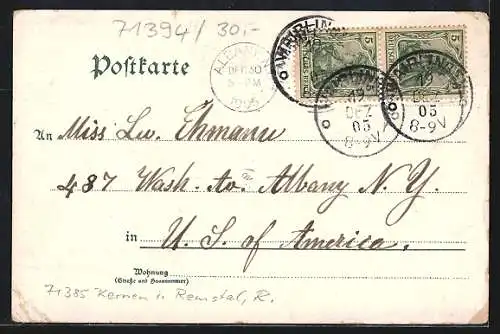 71394/ 30,-
5 5
WAIBLINGEN
19
DEZ
05
8-9V
WAIBLINGEN
19
DEZ
05
8-9V
ALBANY
DEC 30
1905
Postkarte
An Miss Lu. Ehmann
487 Wash. Av. Albany N. Y.
in U. S. of America.
Wohnung
(Straße und Hausnummer)
71385 Kernen i. Remstal, R.